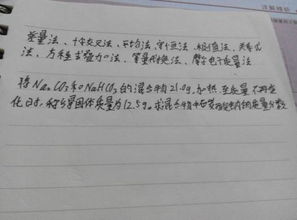 差量法、十字交叉法、平均法、守恒法、极值法、关系式
法、方程式叠加法、等量代换法、摩尔电子质量法
将Na₂CO₃和NaHCO₃的混合物21.0g,加热至质量不再变
化时,称得固体质量为12.5g。求混合物中碳酸钠的质量分数